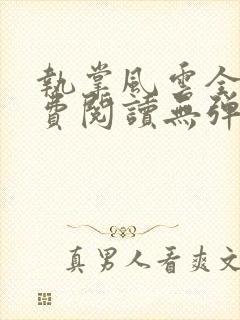 執掌風雲全
費閱讀無彈
真男人看爽文